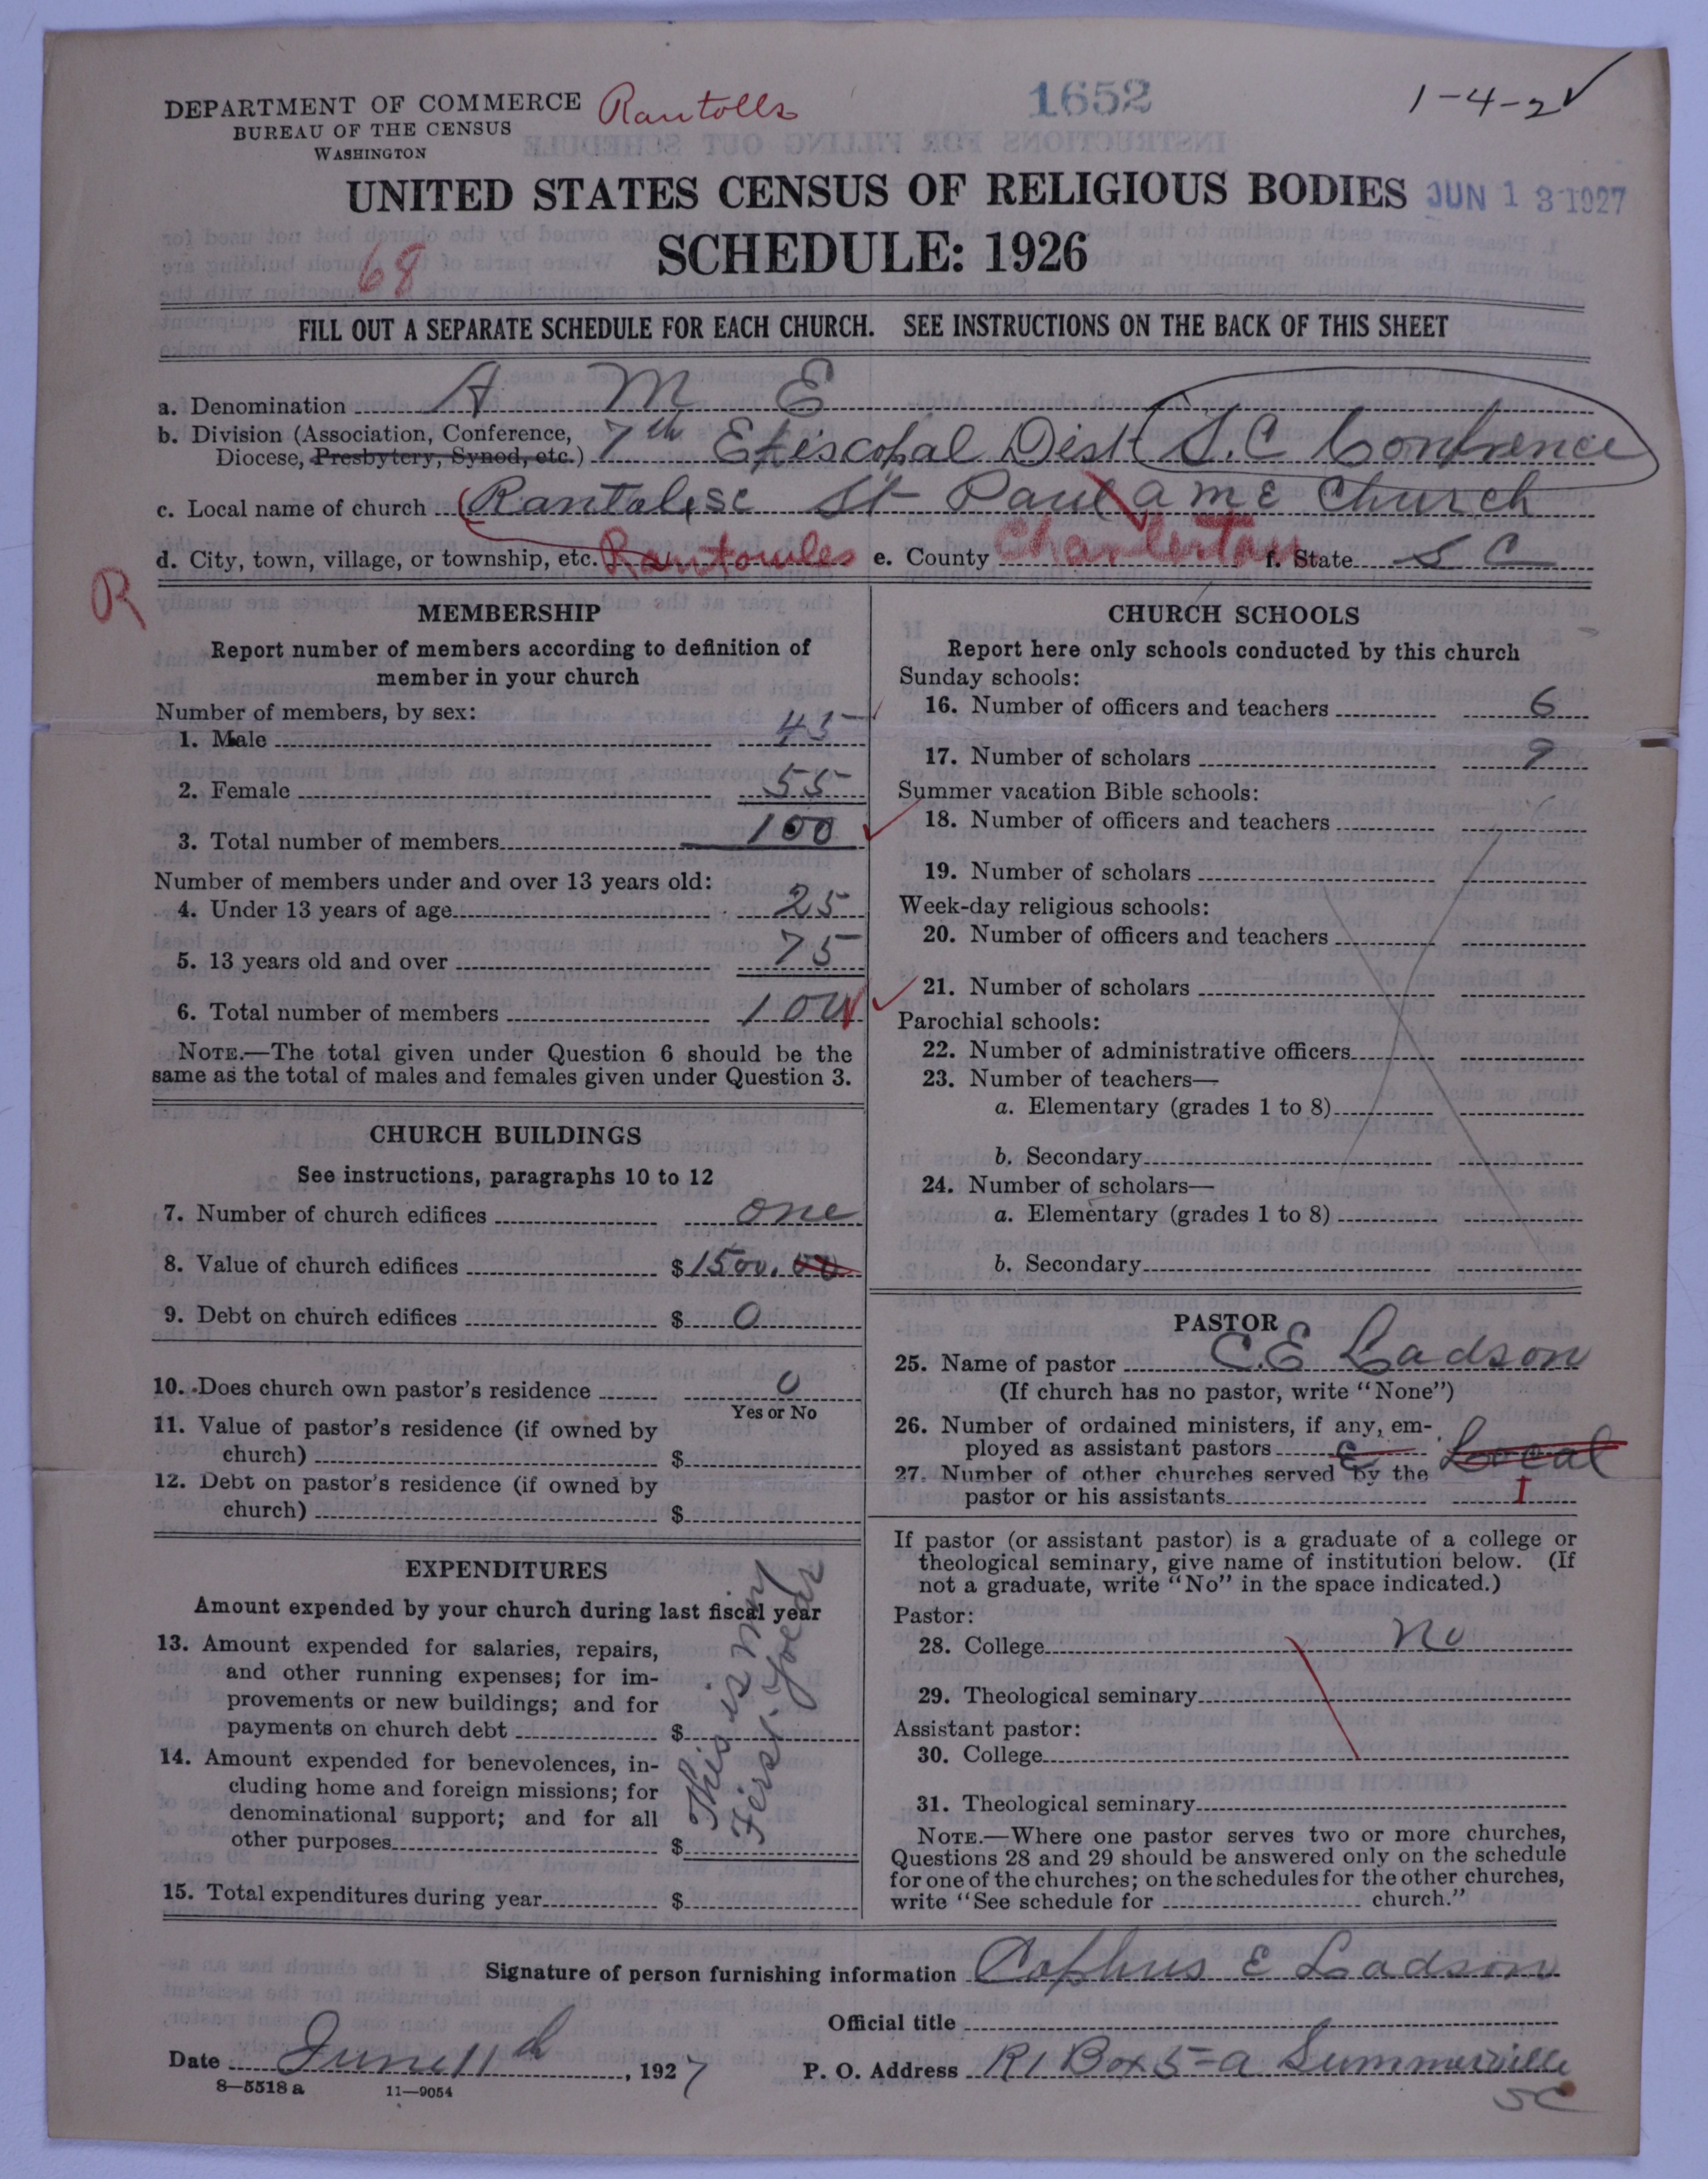 DEPARTMENT OF COMMERCE
BUREAU OF THE CENSUS
WASHINGTON
Rantolls
1652
1-4-2
UNITED STATES CENSUS OF RELIGIOUS BODIES
JUN 13 1927
SCHEDULE: 1926
68
FILL OUT A SEPARATE SCHEDULE FOR EACH CHURCH. SEE INSTRUCTIONS ON THE BACK OF THIS SHEET
a. Denomination A M E
b. Division (Association, Conference, Diocese, Presbytery, Synod, etc.) 7th Episcopal Dist S.C Confrence
c. Local name of church Rantoles SC St Paul a m E Church
d. City, town, village, or township, etc. Rantowles e. County Charleston f. State S C
R
MEMBERSHIP
Report number of members according to definition of
member in your church
Number of members, by sex:
1. Male 45
2. Female 55
3. Total number of members 100
Number of members under and over 13 years old:
4. Under 13 years of age 25
5. 13 years old and over 75
6. Total number of members 100
NOTE.—The total given under Question 6 should be the
same as the total of males and females given under Question 3.
CHURCH BUILDINGS
See instructions, paragraphs 10 to 12
7. Number of church edifices one
8. Value of church edifices $1500.00
9. Debt on church edifices $ 0
10. Does church own pastor's residence 0
Yes or No
11. Value of pastor's residence (if owned by
church) $
12. Debt on pastor's residence (if owned by
church) $
EXPENDITURES
Amount expended by your church during last fiscal year
13. Amount expended for salaries, repairs,
and other running expenses; for im-
provements or new buildings; and for
payments on church debt $
14. Amount expended for benevolences, in-
cluding home and foreign missions; for
denominational support; and for all
other purposes $
This is my
First Year
15. Total expenditures during year $
CHURCH SCHOOLS
Report here only schools conducted by this church
Sunday schools:
16. Number of officers and teachers 6
17. Number of scholars 9
Summer vacation Bible schools:
18. Number of officers and teachers
19. Number of scholars
Week-day religious schools:
20. Number of officers and teachers
21. Number of scholars
Parochial schools:
22. Number of administrative officers
23. Number of teachers—
a. Elementary (grades 1 to 8)
b. Secondary
24. Number of scholars—
a. Elementary (grades 1 to 8)
b. Secondary
PASTOR
25. Name of pastor C.E Ladson
(If church has no pastor, write "None")
26. Number of ordained ministers, if any, em-
ployed as assistant pastors Local
27. Number of other churches served by the
pastor or his assistants 1
If pastor (or assistant pastor) is a graduate of a college or
theological seminary, give name of institution below. (If
not a graduate, write "No" in the space indicated.)
Pastor:
28. College No
29. Theological seminary
Assistant pastor:
30. College
31. Theological seminary
NOTE.—Where one pastor serves two or more churches,
Questions 28 and 29 should be answered only on the schedule
for one of the churches; on the schedules for the other churches,
write "See schedule for church."
Signature of person furnishing information Cephus E Ladson
Official title
Date June 11th, 1927 P. O. Address R1 Box 5-a Summerville
SC
8—5518 a 11—9054